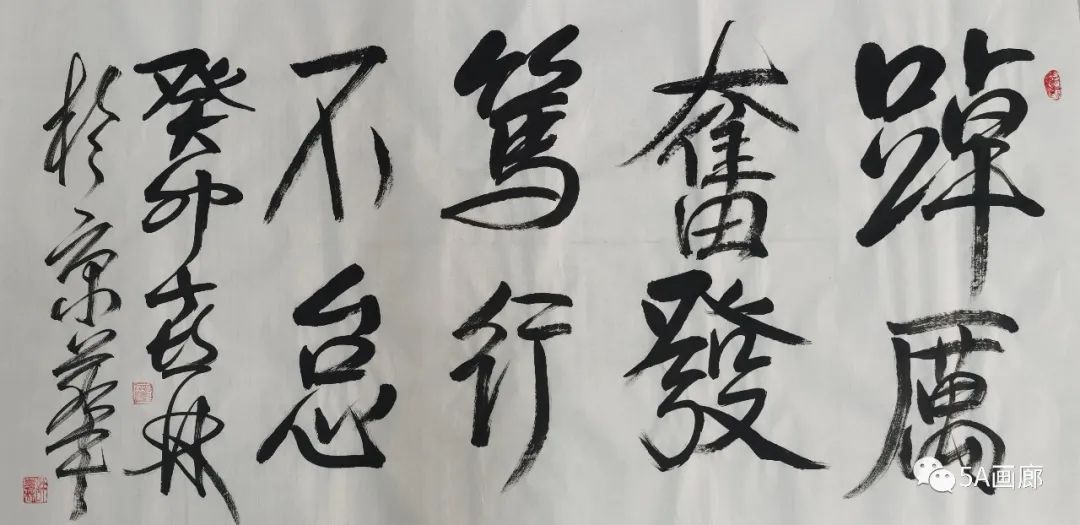 踔厲
奮發
篤行
不怠
癸卯喜林
於京華
5A画廊